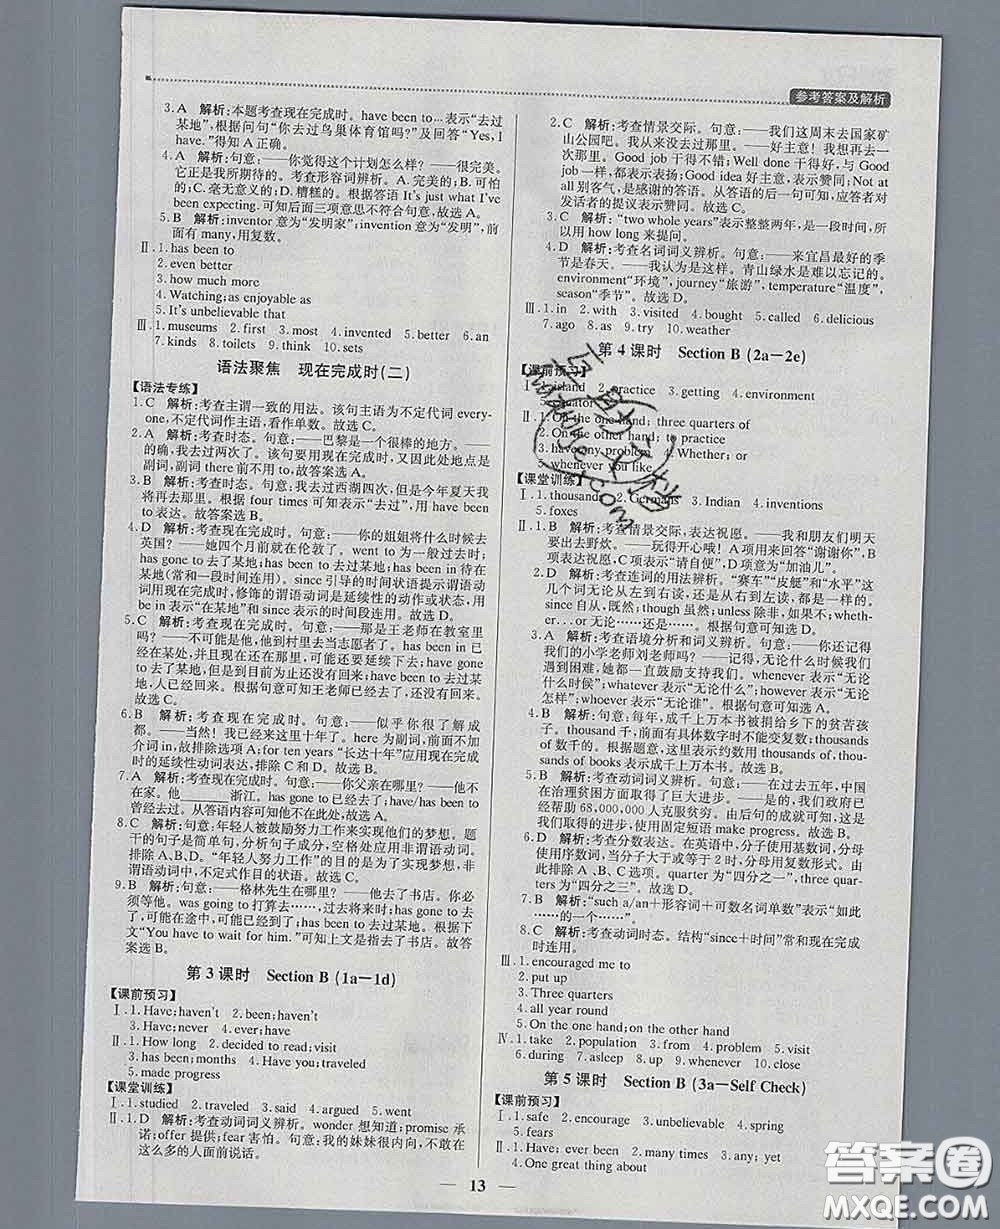 参考答案及解析
3. A 解析:本题考查现在完成时。have been to…表示“去过
某地”,根据问句“你去过鸟巢体育馆吗?”及回答“Yes, I
have.”得知 A 正确。
4. A 解析:句意:——你觉得这个计划怎么样?——很完美。
它正是我所期待的。考查形容词辨析。A. 完美的;B. 可怕
的;C. 毫无意义的;D. 糟糕的。根据答语 It's just what I've
been expecting. 可知后面三项意思不符合句意,故选 A。
5. B 解析:inventor 意为“发明家”;invention 意为“发明”,前
面有 many,用复数。
Ⅱ. 1. has been to
2. even better
3. how much more
4. Watching; as enjoyable as
5. It's unbelievable that
Ⅲ. 1. museums 2. first 3. most 4. invented 5. better 6. an
7. kinds 8. toilets 9. think 10. sets
语法聚焦 现在完成时(二)
【语法专练】
1. C 解析:考查主谓一致的用法。该句主语为不定代词 every-
one,不定代词作主语,看作单数。故选 C。
2. A 解析:考查时态。句意:——巴黎是一个很棒的地方。——
的确,我去过两次了。该句要用现在完成时,又因此处地点是
副词,副词 there 前不用 to,故答案选 A。
3. B 解析:考查时态。句意:我去过西湖四次,但是今年夏天我
将再去一次。根据 four times 可知表示“去过”用现在完成
时,故答案选 B。
4. D 解析:考查现在完成时。句意:——你的姐姐将什么时候去
英国?——她四个月前就在伦敦了。went to 为一般过去时;
has gone to 去了某地;has been to 去过某地;has been in 待在
某地(常和一段时间连用)。since 引导的时间状语提示谓语动
词用现在完成时,修饰的谓语动词是延续性的动作或状态,使
用 be in 表示“在某地”和 since 表示的时间段连用。故选 D。
5. C 解析:考查现在完成时。句意:——那是王老师在教室里
吗?——不可能是他,他到村里去当志愿者了。has been in 已
经在某处了,并且表示可能还要延续下去;has been to 去过某
地,但是目前不会待在那里;has gone to 去了某地,表示离开此
地,人已经回来了。根据句意可知王老师已经离开这里去了村
庄。故选 C。
6. B 解析:考查现在完成时。句意:——似乎你很了解成
都。——当然!我已经来这里十年了。here 为副词,前面不加
介词 in,故排除选项 A;for ten years “长达十年”应用现在完成
时的延续性动词表达,故排除 C、D。故选 B。
7. A 解析:考查现在完成时。句意:——你父亲在哪里?——他不
在家。他____浙江。has gone to 已经去了;have/has been to
曾经去过。从答语内容可知他不在此处,故选 A。
8. C 解析:句意:年轻人被鼓励努力工作来实现他们的梦想。题
干的句子是简单句,分析句子成分,空格处应用非谓语动词。
排除 A、B、D。“年轻人努力工作”的目的是为了实现梦想,非
谓语动词中,不定式作目的状语。故选 C。
9. B 解析:句意:——格林先生在哪里?——他去了书店。你必
须等他。was going to 打算去……,过去将来时;has gone to 去
了,可能在途中,可能已经到了;has been to 去过。根据下
文“You have to wait for him.”可知上文是指去了书店。故答
案选 B。
第 3 课时 Section B (1a—1d)
【课前预习】
Ⅰ. 1. Have; haven't 2. been; haven't
3. Have; never 4. ever; have
Ⅱ. 1. How long 2. decided to read; visit
3. has been; months 4. Have you; traveled
5. made progress
【课堂训练】
Ⅰ. 1. studied 2. traveled 3. said 4. argued 5. went
Ⅱ. 1. D 解析:考查动词词义辨析。wonder 想知道;promise 承
诺;offer 提供;fear 害怕。句意:我的妹妹很内向,不敢在
这么多的人面前说话。
2. C 解析:考查情景交际。句意:——我们这周末去国家矿
山公园吧。我从来没去过那里。——好主意!我想再去
一次那里。Good job 干得不错;Well done 干得好,与 Good
job 一样,都表示表扬;Good idea 好主意,表示赞同;Not at
all 别客气,是感谢的答语。从答语的后一句可知,应答者对
发话者的提议表示赞同。故选 C。
3. C 解析:“two whole years”表示整整两年,是一段时间,所
以用 how long 来提问。
4. D 解析:考查名词词义辨析。句意:——来宜昌最好的季
节是春天。——我认为是这样。青山绿水是难以忘记的。
environment“环境”,journey“旅游”,temperature“温度”,
season“季节”。故选 D。
Ⅲ. 1. in 2. with 3. visited 4. bought 5. called 6. delicious
7. ago 8. as 9. try 10. weather
第 4 课时 Section B (2a—2e)
【课前预习】
Ⅰ. 1. island 2. practice 3. getting 4. environment
5. equator
Ⅱ. 1. On the one hand; three quarters of
2. On the other hand; to practice
3. have any problem 4. Whether; or
5. whenever you like
【课堂训练】
Ⅰ. 1. thousands 2. Germans 3. Indian 4. inventions
5. foxes
Ⅱ. 1. B 解析:考查情景交际,表达祝愿。——我和朋友们明天
要出去野炊。——玩得开心哦!A 项用来回答“谢谢你”,B
项表达祝愿,C 项表示“请自便”,D 项意为“加油儿”。
2. D 解析:考查连词的用法辨析。“赛车”“皮艇”和“水平”这
几个词无论从左到右读,还是从右到左读,都是一样的。since
自从,既然;though 虽然;unless 除非,如果不。wheth-
er… or 无论……还是……。根据句意可知选 D。
3. A 解析:考查语境分析和词义辨析。句意:——你还记得
我们的小学老师刘老师吗?——记得,无论什么时候我们
遇到困难,她都一直鼓励支持我们。whenever 表示“无论
什么时候”;whatever 表示“无论什么”;however 表示“无论
怎样”;whoever 表示“无论谁”。根据句意可知选 A。
4. B 解析:句意:每年,成千上万本书被捐给乡下的贫苦孩
子。thousand 千,前面有具体数字时不能变复数;thousands
of 数千的。根据题意,这里表示约数用 thousands of, thou-
sands of books 表示成千上万本书。故选 B。
5. B 解析:考查动词词义辨析。句意:——在过去五年,中国
在治理贫困方面取得了巨大进步。——是的,我们国家已
经帮助 68,000,000 人克服贫穷。由后句的成就可知,这是
我们取得的进步,使用固定短语 make progress。故选 B。
6. D 解析:考查分数表达。在英语中,分子使用基数词,分母
使用序数词,当分子大于或等于 2 时,分母用复数形式。由此
排除 B、A、C。quarter 为“四分之一”,three quar-
ters 为“四分之三”。故选 D。
7. B 解析:“such a/an+形容词+可数名词单数”表示“如此
……的一个……”。
8. C 解析:考查动词时态。结构“since+时间”常和现在完成
时连用。
Ⅲ. 1. encouraged me to
2. put up
3. Three quarters
4. all year round
5. On the one hand; on the other hand
Ⅳ. 1. take 2. population 3. from 4. problem 5. visit
6. during 7. asleep 8. up 9. whenever 10. close
第 5 课时 Section B (3a—Self Check)
【课前预习】
Ⅰ. 1. safe 2. encourage 3. unbelievable 4. spring
5. fears
Ⅱ. 1. Have; ever been 2. many times 3. any; yet
4. One great thing about
— 13 —
答案圈
MXQE.COM